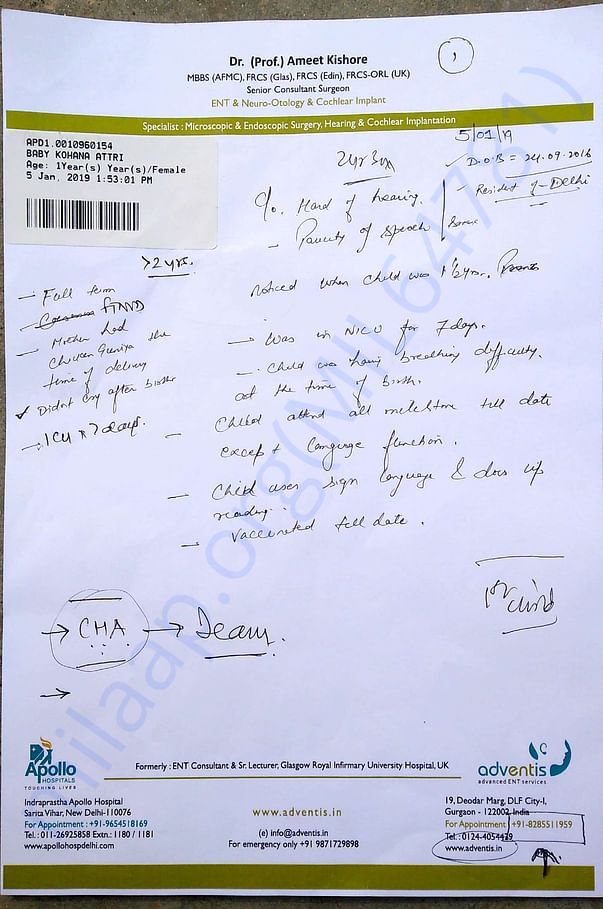 Dr. (Prof.) Ameet Kishore
1
MBBS (AFMC), FRCS (Glas), FRCS (Edin), FRCS-ORL (UK)
Senior Consultant Surgeon
ENT & Neuro-Otology & Cochlear Implant
Specialist : Microscopic & Endoscopic Surgery, Hearing & Cochlear Implantation
APD1.0010960154
BABY KOHANA ATTRI
Age: 1Year(s) Year(s)/Female
5 Jan, 2019 1:53:01 PM
5/01/19
D.O.B = 24.09.2016
Resident of - Delhi
2yr 3m
c/o. Hard of hearing.
- Paucity of speech
since
noticed when child was 1 1/2 yrs.
>2 yrs.
- Full term
- Mother had
Chicken Guniya the
time of delivery
✓ Didnt cry after birth
- ICU x 7 days.
- Was in NICU for 7 days.
- Child was having breathing difficulty.
at the time of birth.
- Child attend all milestone till date
except language function.
- Child uses sign language & does lip
reading.
- Vaccinated till date.
1st child
→ CHA → Team.
→
milaap.org(MIL647761)
Apollo
HOSPITALS
TOUCHING LIVES
Formerly : ENT Consultant & Sr. Lecturer, Glasgow Royal Infirmary University Hospital, UK
adventis
advanced ENT services
Indraprastha Apollo Hospital
Sarita Vihar, New Delhi-110076
For Appointment : +91-9654518169
Tel. : 011-26925858 Extn.: 1180 / 1181
www.apollohospdelhi.com
www.adventis.in
(e) info@adventis.in
For emergency only +91 9871729898
19, Deodar Marg, DLF City-I,
Gurgaon - 122002, India
For Appointment +91-8285511959
Tel.: 0124-4054439
www.adventis.in